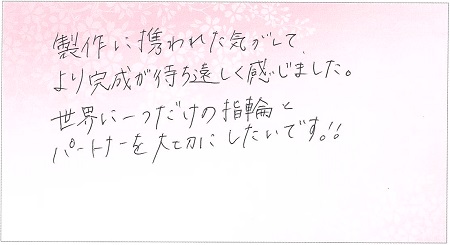 製作に携われた気がして、
より完成が待ち遠しく感じました。
世界に一つだけの指輪と
パートナーを大切にしたいです。!!